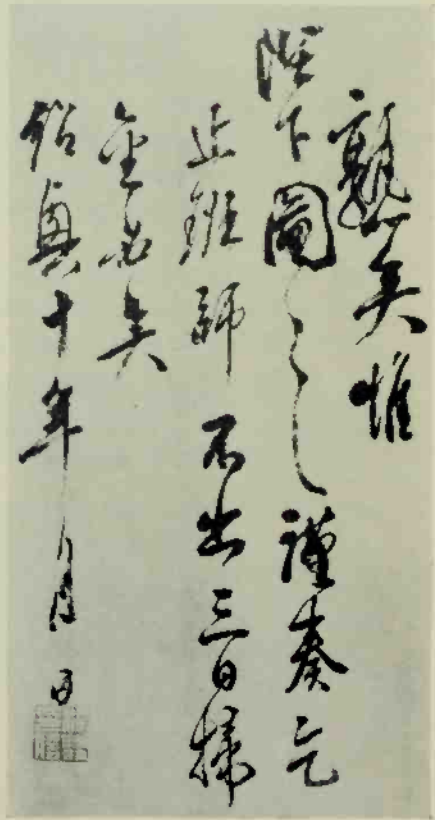 孰矣惟
陛下圖之謹奏乞
止班師不出三日掃
金必矣
紹興十年月日